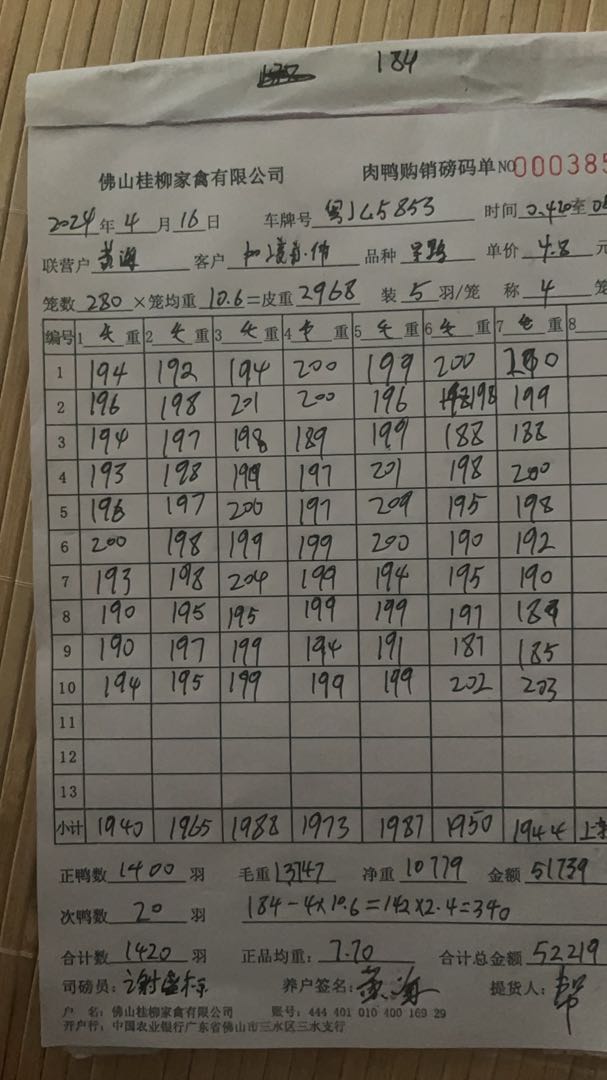 184
佛山桂柳家禽有限公司 肉鸭购销磅码单 NO 000385
2024 年 4 月 16 日 车牌号 粤JL5853 时间 0.420至
联营户 黄海 客户 品种 单价 4.8 元
笼数 280 ×笼均重 10.6 =皮重 2968 装 5 羽/笼 称 4 笼
编号 1 重 2 重 3 重 4 重 5 重 6 重 7 重 8
1 194 192 194 200 199 200 190
2 196 198 201 200 196 198 199
3 194 197 198 189 199 188 188
4 193 198 199 197 201 198 200
5 196 197 200 197 209 195 198
6 200 198 199 199 200 190 192
7 193 198 204 199 194 195 190
8 190 195 195 199 199 197 189
9 190 197 199 194 191 187 185
10 194 195 199 199 199 202 203
11
12
13
小计 1940 1965 1988 1973 1987 1950 1944
正鸭数 1400 羽 毛重 13747 净重 10779 金额 51739
次鸭数 20 羽 184-4×10.6=142×2.4=340
合计数 1420 羽 正品均重: 7.70 合计总金额 52219
司磅员: 养户签名: 黄海 提货人:
户 名: 佛山桂柳家禽有限公司 账号: 444 401 010 400 169 29
开户行: 中国农业银行广东省佛山市三水区三水支行